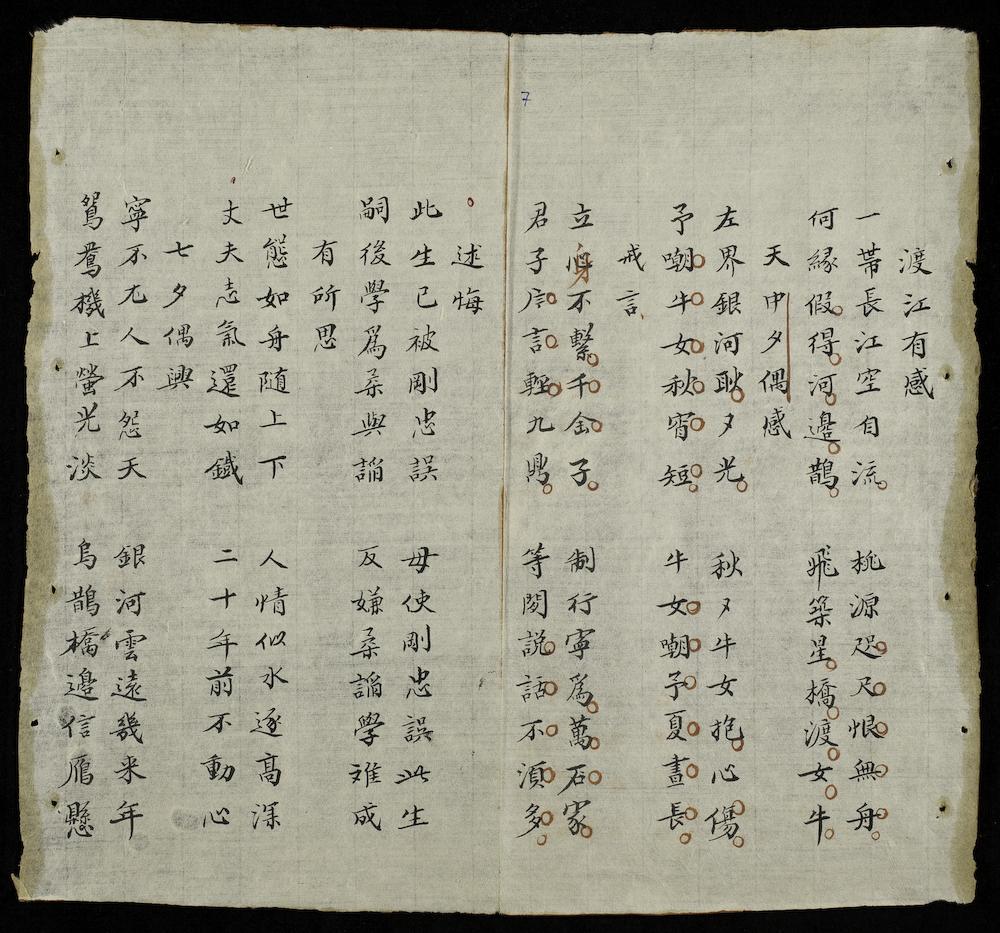 7
渡江有感
一帶長江空自流 桃源咫尺恨無舟
何緣假得河邊鵲 飛築星橋渡女牛
天中夕偶感
左界銀河耿夕光 秋夕牛女抱心傷
予嘲牛女秋宵短 牛女嘲予夏晝長
戒言
立身不繫千金子 制行寧爲萬石家
君子片言輕九鼎 等閒説話不須多
述悔
此生已被剛忠誤 毋使剛忠誤此生
嗣後學爲柔與諂 反嫌柔諂學难成
有所思
世態如舟随上下 人情似水逐高深
丈夫志氣還如鐵 二十年前不動心
七夕偶興
寧不尤人不怨天 銀河雲遠幾来年
鴛鴦機上螢光淡 烏鵲橋邊信鴈懸